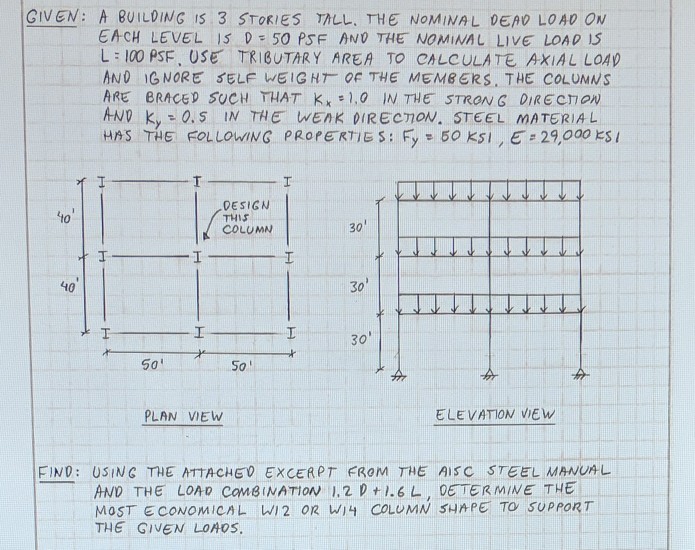 GIVEN: A BUILDING IS 3 STORIES TALL. THE NOMINAL DEAD LOAD ON
EACH LEVEL IS D = 50 PSF AND THE NOMINAL LIVE LOAD IS
L = 100 PSF. USE TRIBUTARY AREA TO CALCULATE AXIAL LOAD
AND IGNORE SELF WEIGHT OF THE MEMBERS. THE COLUMNS
ARE BRACED SUCH THAT Kx = 1.0 IN THE STRONG DIRECTION
AND Ky = 0.5 IN THE WEAK DIRECTION. STEEL MATERIAL
HAS THE FOLLOWING PROPERTIES: Fy = 50 KSI, E = 29,000 KSI
DESIGN
THIS
COLUMN
40'
40'
50'
50'
PLAN VIEW
30'
30'
30'
ELEVATION VIEW
FIND: USING THE ATTACHED EXCERPT FROM THE AISC STEEL MANUAL
AND THE LOAD COMBINATION 1.2 D + 1.6 L, DETERMINE THE
MOST ECONOMICAL W12 OR W14 COLUMN SHAPE TO SUPPORT
THE GIVEN LOADS.